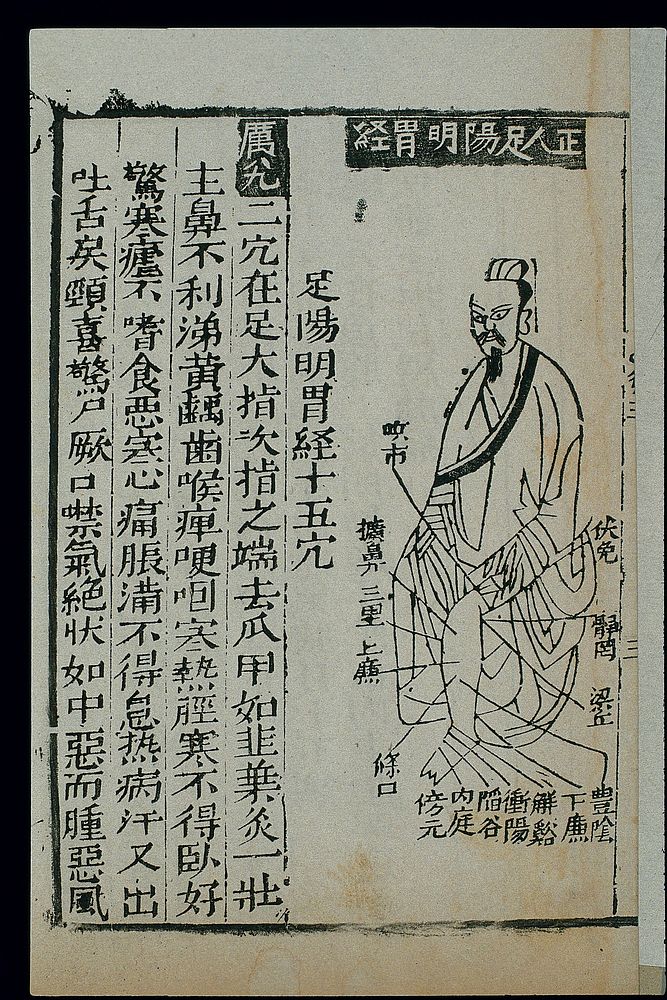 正人足陽明胃經
伏免
梁丘
豊陰
下廉
解谿
衝陽
陷谷
内庭
傍元
條口
三里
上廉
足陽明胃経十五穴
厲兊二穴在足大指次指之端去瓜甲如韭葉灸一壮
主鼻不利涕黄齲齒喉痺哽咽寒熱脛寒不得臥好
驚寒瘧不嗜食惡寒心痛脹滿不得息热病汗又出
吐舌戾頸喜驚尸厥口噤氣絶状如中惡而腫惡風